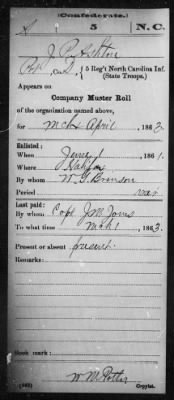 (Confederate.)
5 N.C.
J. P.
5 Reg't North Carolina Inf.
(State Troops.)
Appears on
Company Muster Roll
of the organization named above,
for Mch & April, 1863.
Enlisted:
When June 1, 1861.
Where Halifax
By whom
Period war
Last paid:
By whom Capt J M Jones
To what time Mch 1, 1863.
Present or absent present.
Remarks:
Book mark:
W M Potter
Copyist.